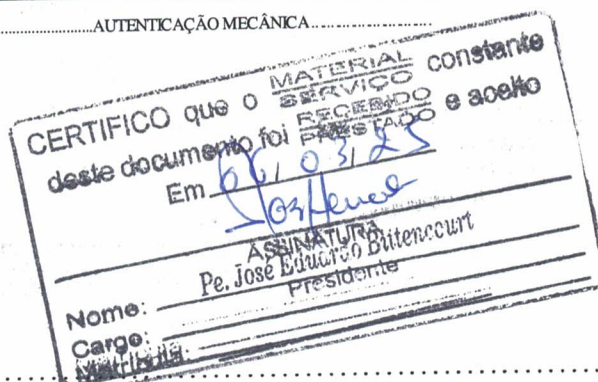 AUTENTICAÇÃO MECÂNICA
CERTIFICO que o MATERIAL SERVIÇO constante
deste documento foi RECEBIDO PRESTADO e aceito
Em 06, 03, 25
ASSINATURA
Pe. José Eduardo Bittencourt
Presidente
Nome:
Cargo:
Matrícula: